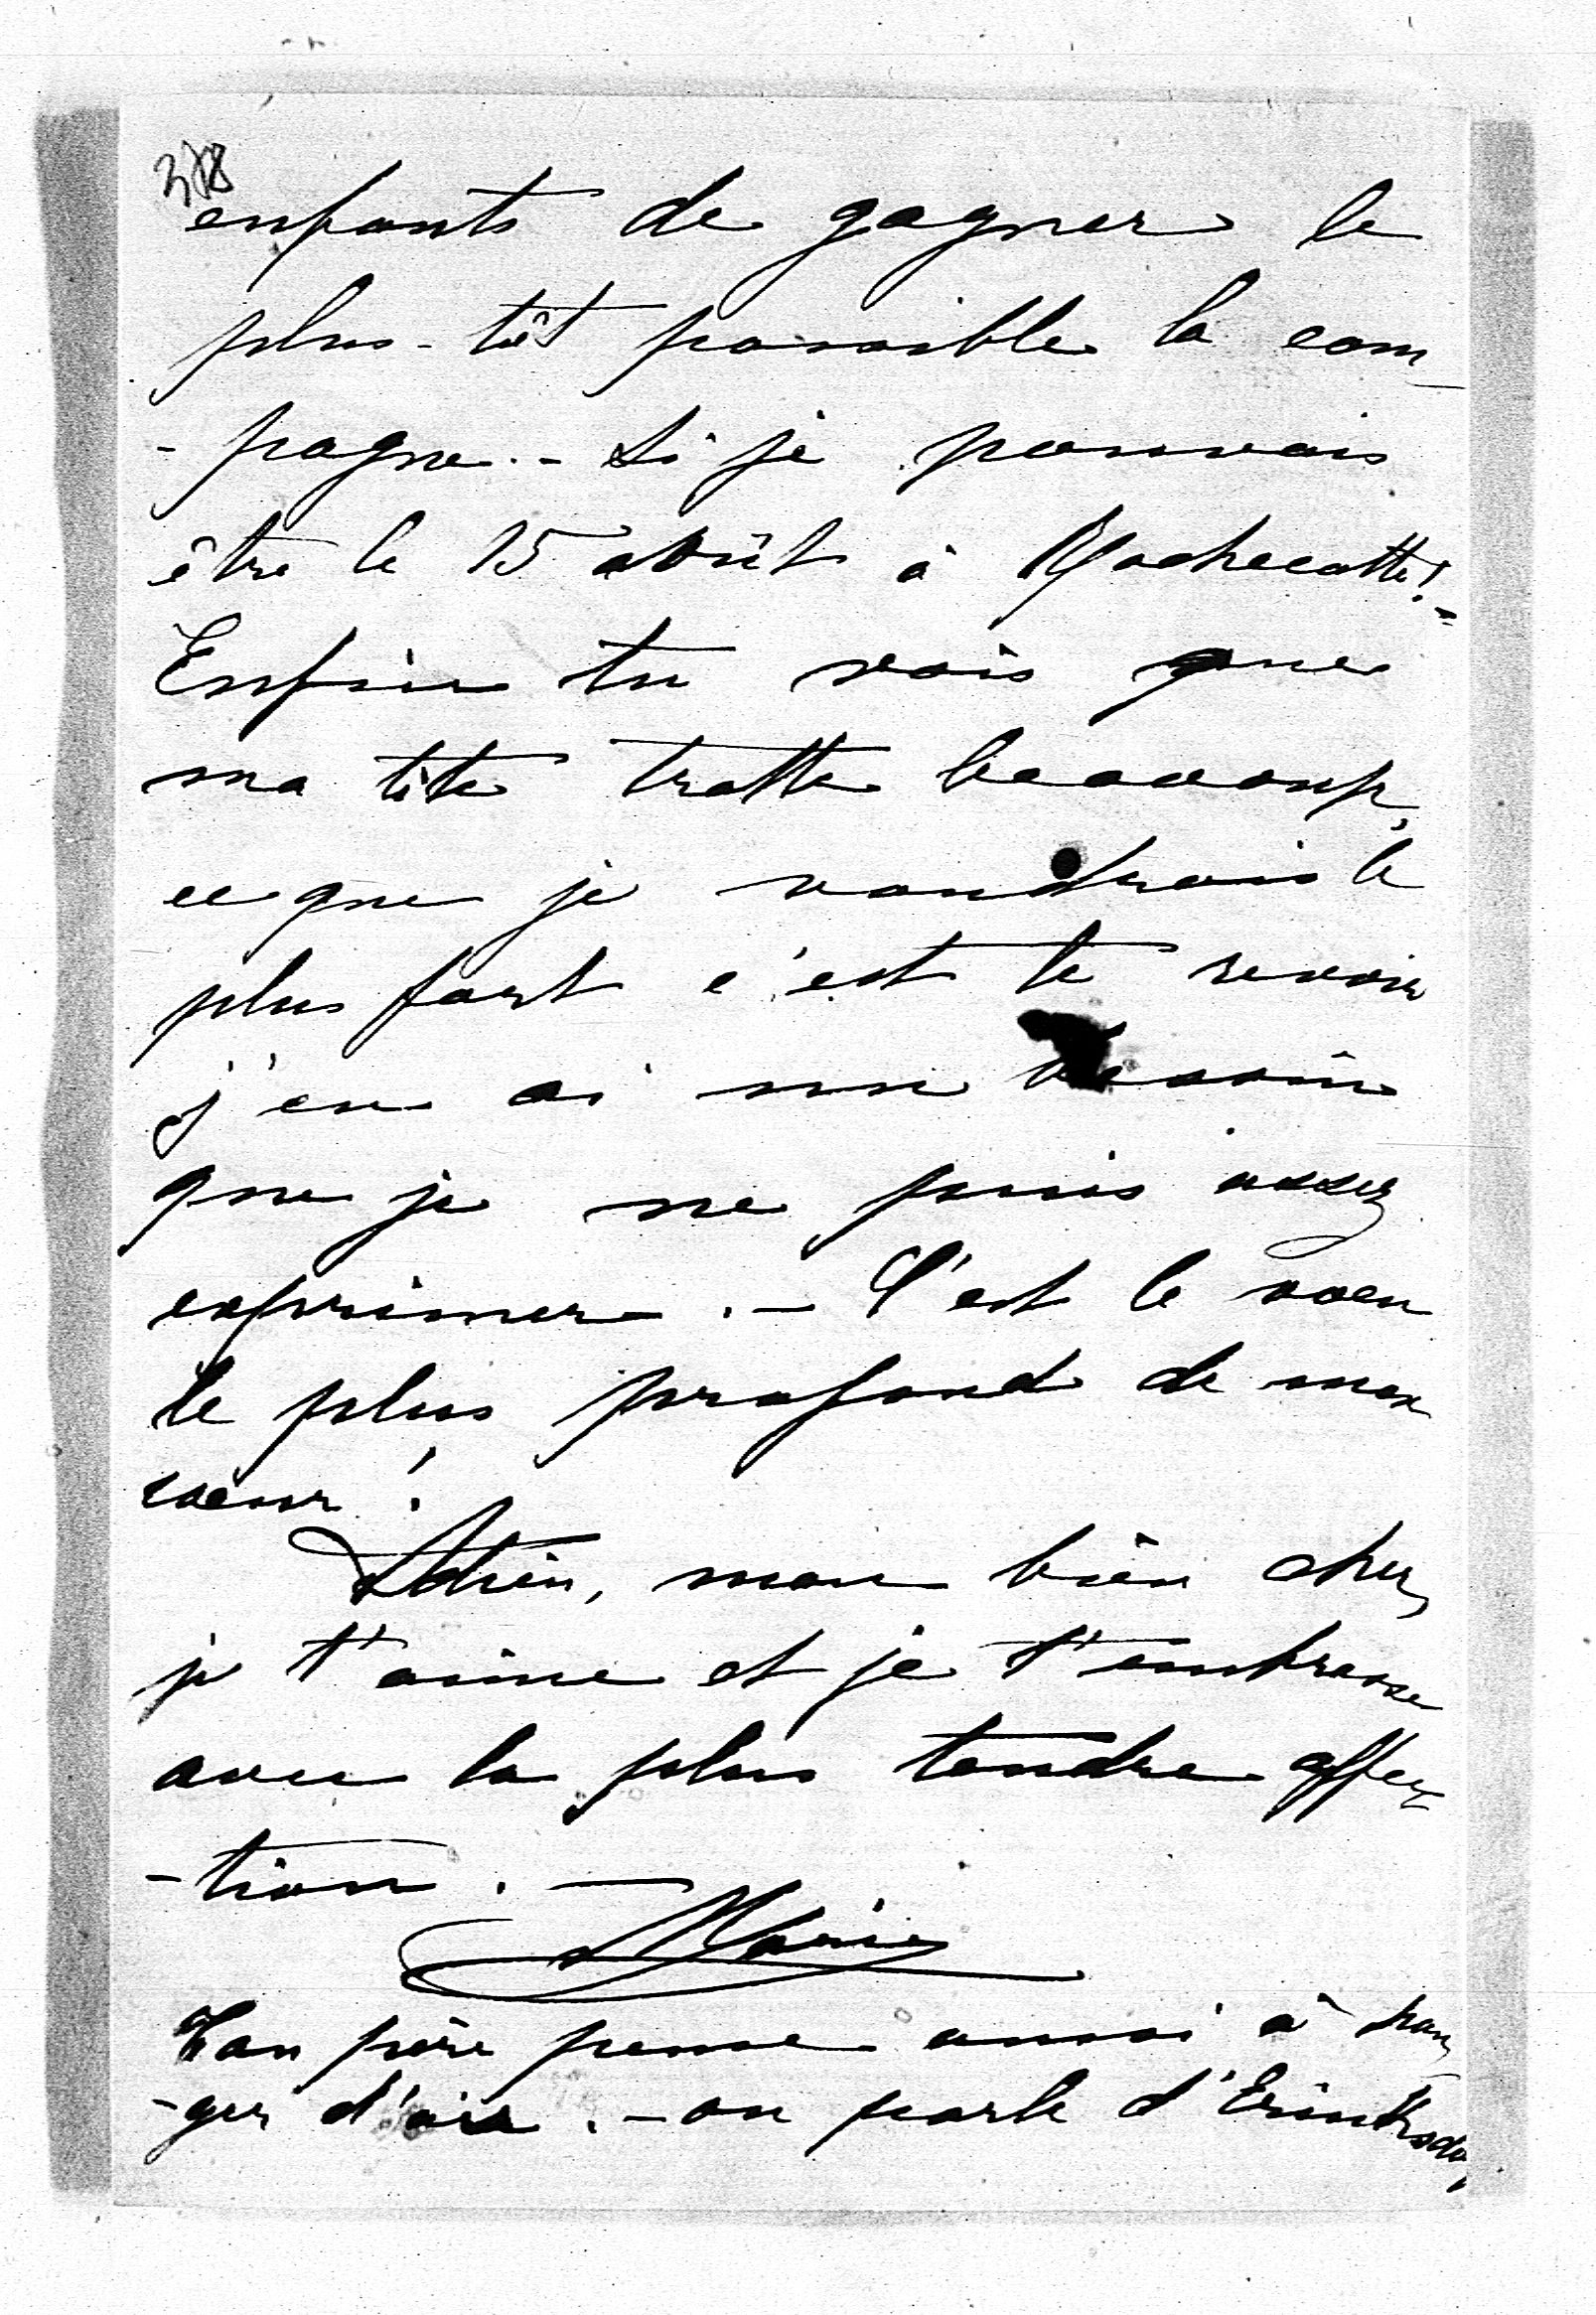 378
enfants de gagner le
plus-tôt possible la cam
-pagne. - Si je pouvais
être le 15 août à Rochecotte! -
Enfin tu vois que
ma tête trotte beaucoup,
ce que je voudrais le
plus fort c'est te revoir
j'en ai un besoin
que je ne puis assez
exprimer. - C'est le voeu
le plus profond de mon
coeur !
Adieu, mon bien cher,
je t'aime et je t'embrasse
avec la plus tendre affec
-tion. -
Marie
Ton père pense aussi à
-ger d'air. - on parle